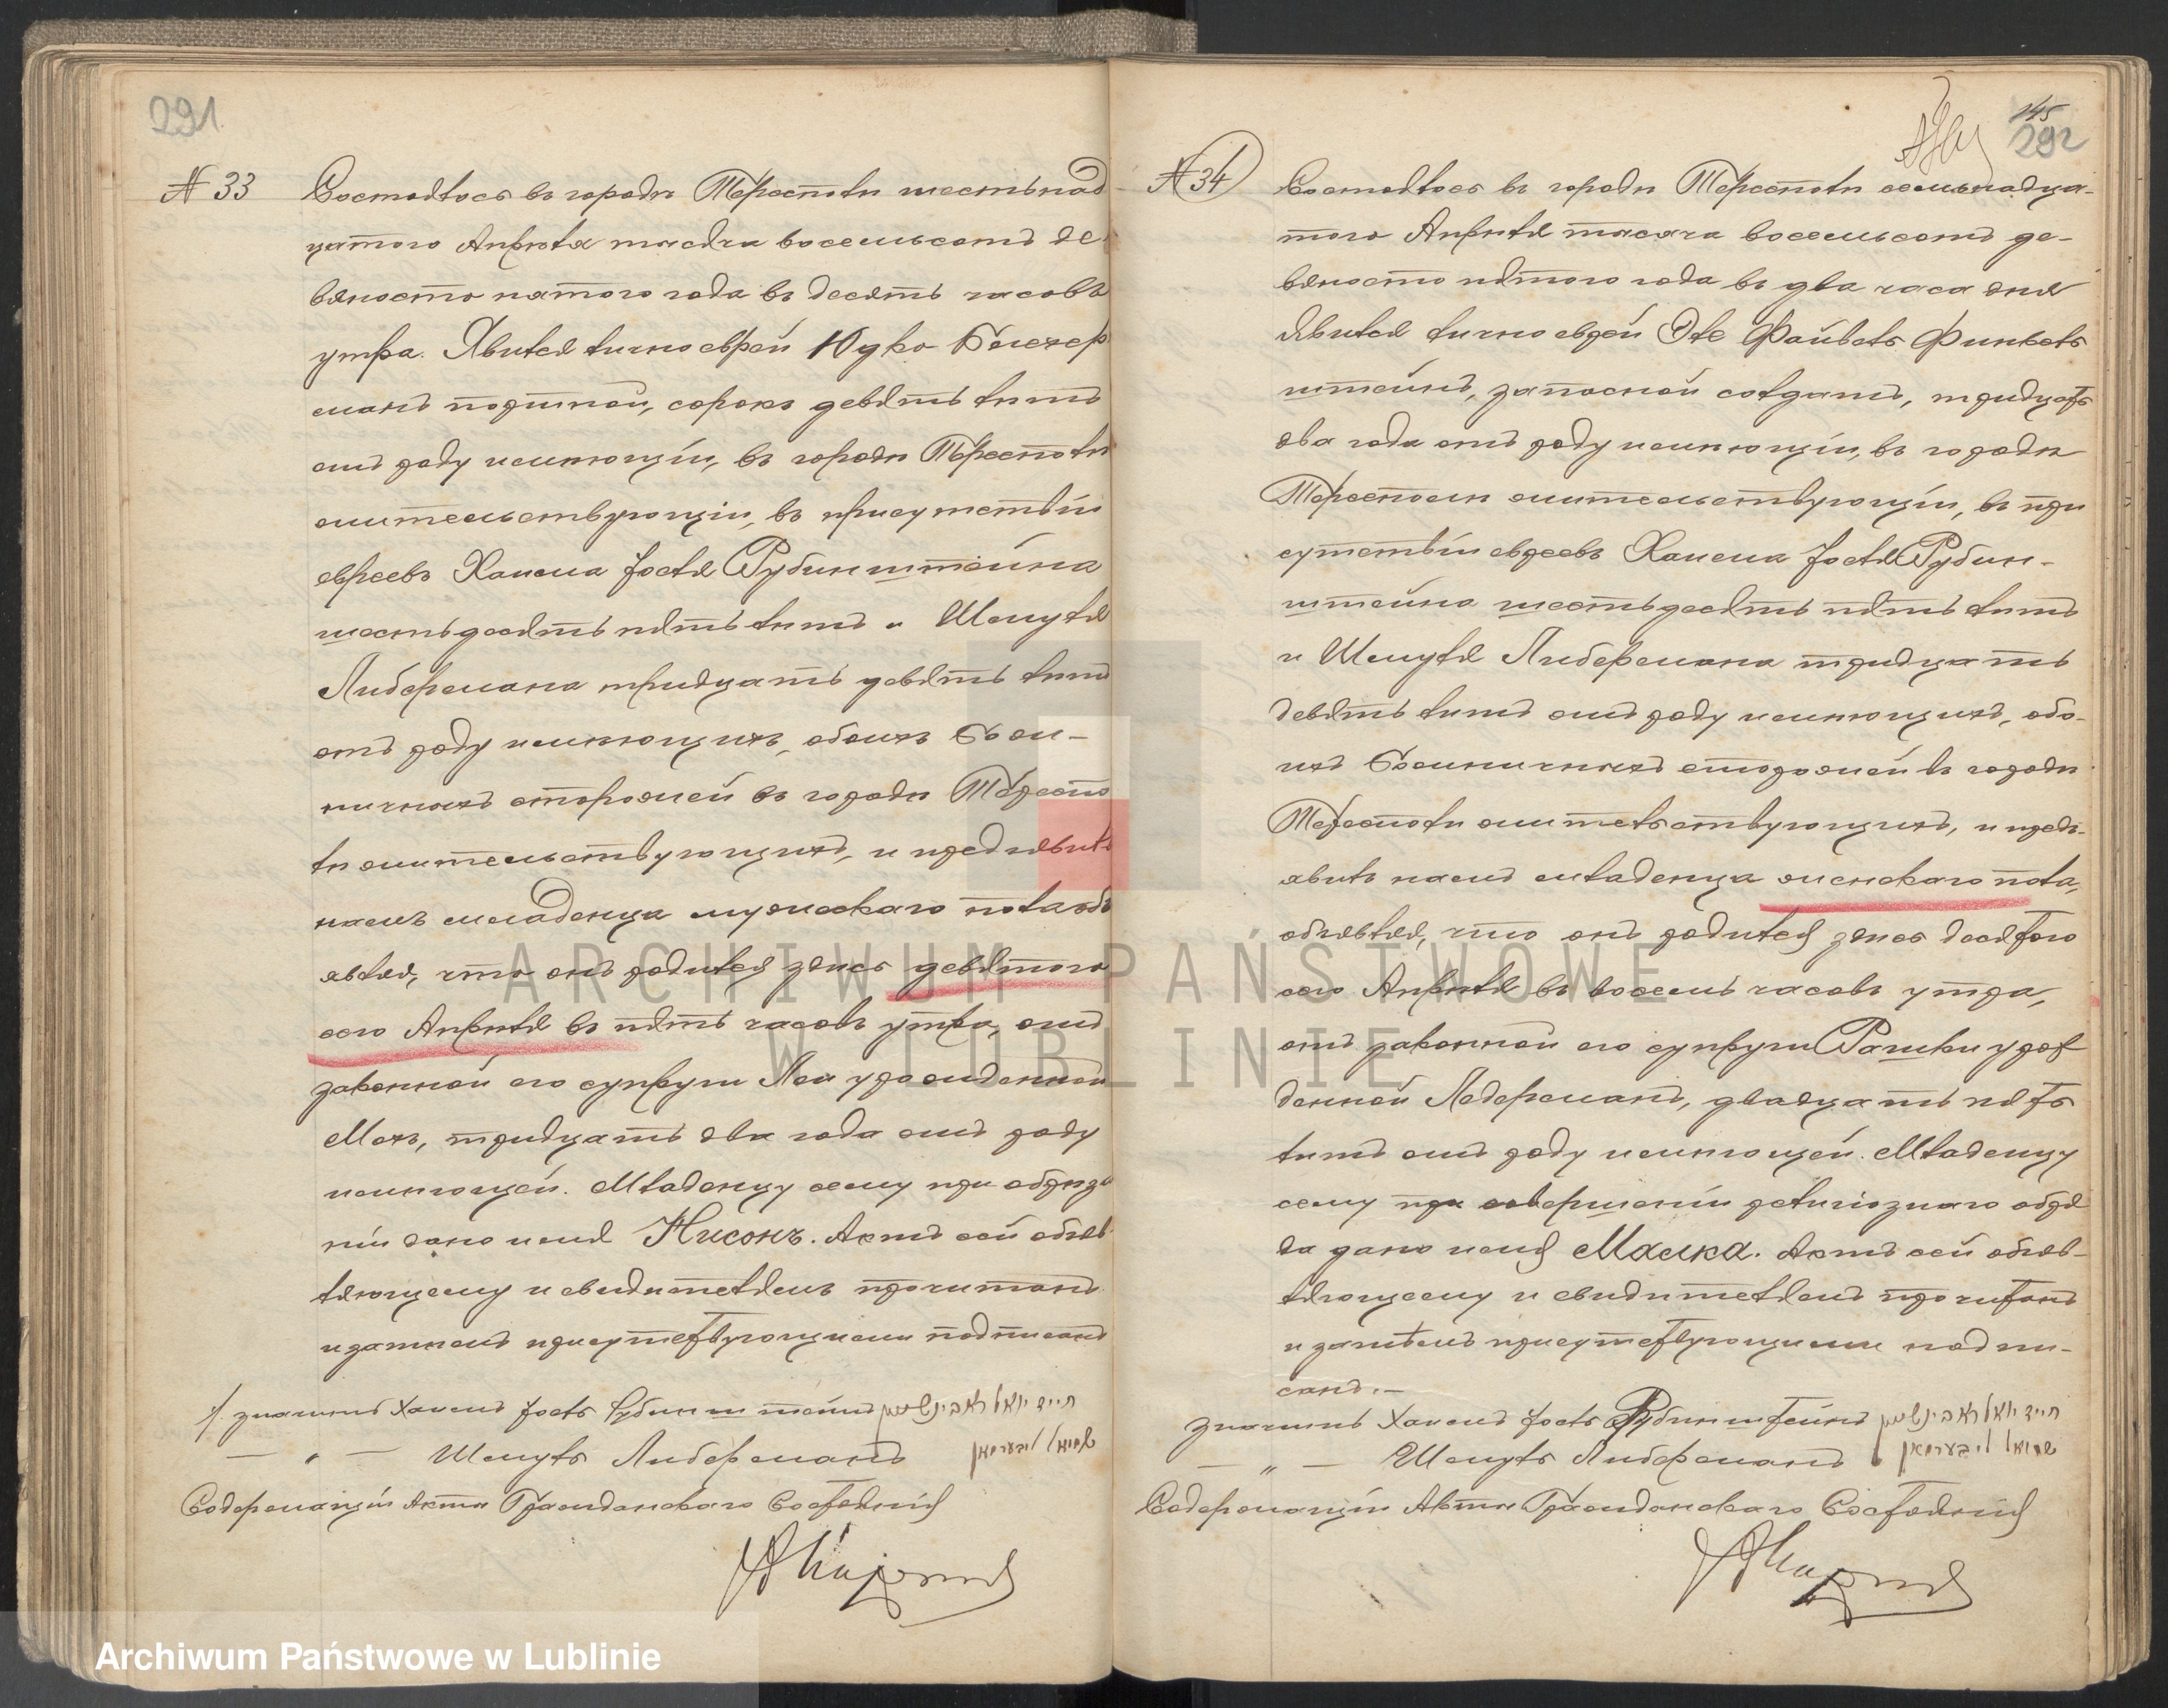 291
№ 33
Состоялось въ городѣ Тересполѣ шестьнад
цатого Апрѣля тысяча восемьсотъ де-
вяносто пятого года въ десять часовъ
утра. Явился лично еврей Юдко Бекер
манъ подписной, сорокъ девять лѣтъ
отъ роду имѣющій, въ городѣ Тересполѣ
жительствующій, въ присутствіи
евреевъ Хаима Іоселя Рубинштейна
шестьдесятъ пять лѣтъ и Шмуля
Либермана тридцать девять лѣтъ
отъ роду имѣющихъ, обоихъ Бож-
ничныхъ сторожей въ городѣ Тереспо
лѣ жительствующихъ, и предъявилъ
намъ младенца мужескаго пола объ
являя, что онъ родился здѣсь девятого
сего Апрѣля въ пять часовъ утра, отъ
законной его супруги Леи урожденной
Мокъ, тридцать два года отъ роду
имѣющей. Младенцу сему при обрѣза
ніи дано имя Нисонъ. Актъ сей объяв
ляющему и свидѣтелямъ прочитанъ
и затѣмъ присутствующими подписанъ
/ значитъ Хаимъ Іосель Рубинштейнъ חיים יואל ראבינשטיין
— „ — Шмуль Либерманъ שמואל ליבערמאן
Содержащій Акты Гражданскаго Состоянія
145
292
№ 34
Состоялось въ городѣ Тересполѣ семьнадца-
того Апрѣля тысяча восемьсотъ де-
вяносто пятого года въ два часа дня
Явился лично еврей Эле Файвель Финкель
штейнъ, запасной солдатъ, тридцать
два года отъ роду имѣющій, въ городѣ
Тересполѣ жительствующій, въ при
сутствіи евреевъ Хаима Іоселя Рубин-
штейна шестьдесятъ пять лѣтъ
и Шмуля Либермана тридцать
девять лѣтъ отъ роду имѣющихъ, обо-
ихъ Божничныхъ сторожей въ городѣ
Тересполѣ жительствующихъ, и предъ-
явилъ намъ младенца женскаго пола,
объявляя, что онъ родился здѣсь десятого
сего Апрѣля въ восемь часовъ утра,
отъ законной его супруги Рашки урож
денной Ледерманъ, двадцать пять
лѣтъ отъ роду имѣющей. Младенцу
сему при совершеніи религіознаго обря
да дано имя Малка. Актъ сей объяв-
ляющему и свидѣтелямъ прочитанъ
и затѣмъ присутствующими подпи-
санъ. —
значитъ Хаимъ Іосель Рубинштейнъ חיים יואל ראבינשטיין
— „ — Шмуль Либерманъ שמואל ליבערמאן
Содержащій Акты Гражданскаго Состоянія
ARCHIWUM PAŃSTWOWE
W LUBLINIE
Archiwum Państwowe w Lublinie